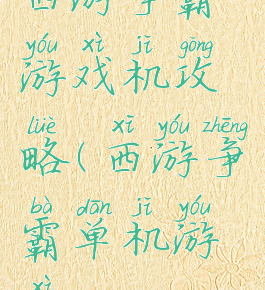 西游争霸
yóu xì jī gōng
游戏机攻
lüè xī yóu zhēng
略(西游争
bà dān jī yóu
霸单机游
xì